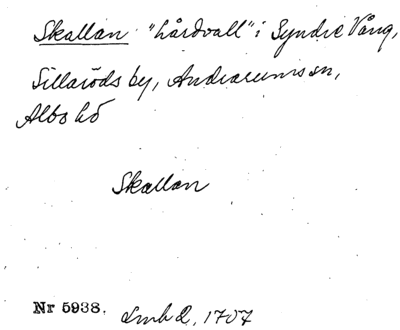 Skallan "hårdvall" i Syndre Vång,
Sillaröds by, Andrarums sn,
Albo hd
Skallan
Nr 5938. Lmh Q, 1707